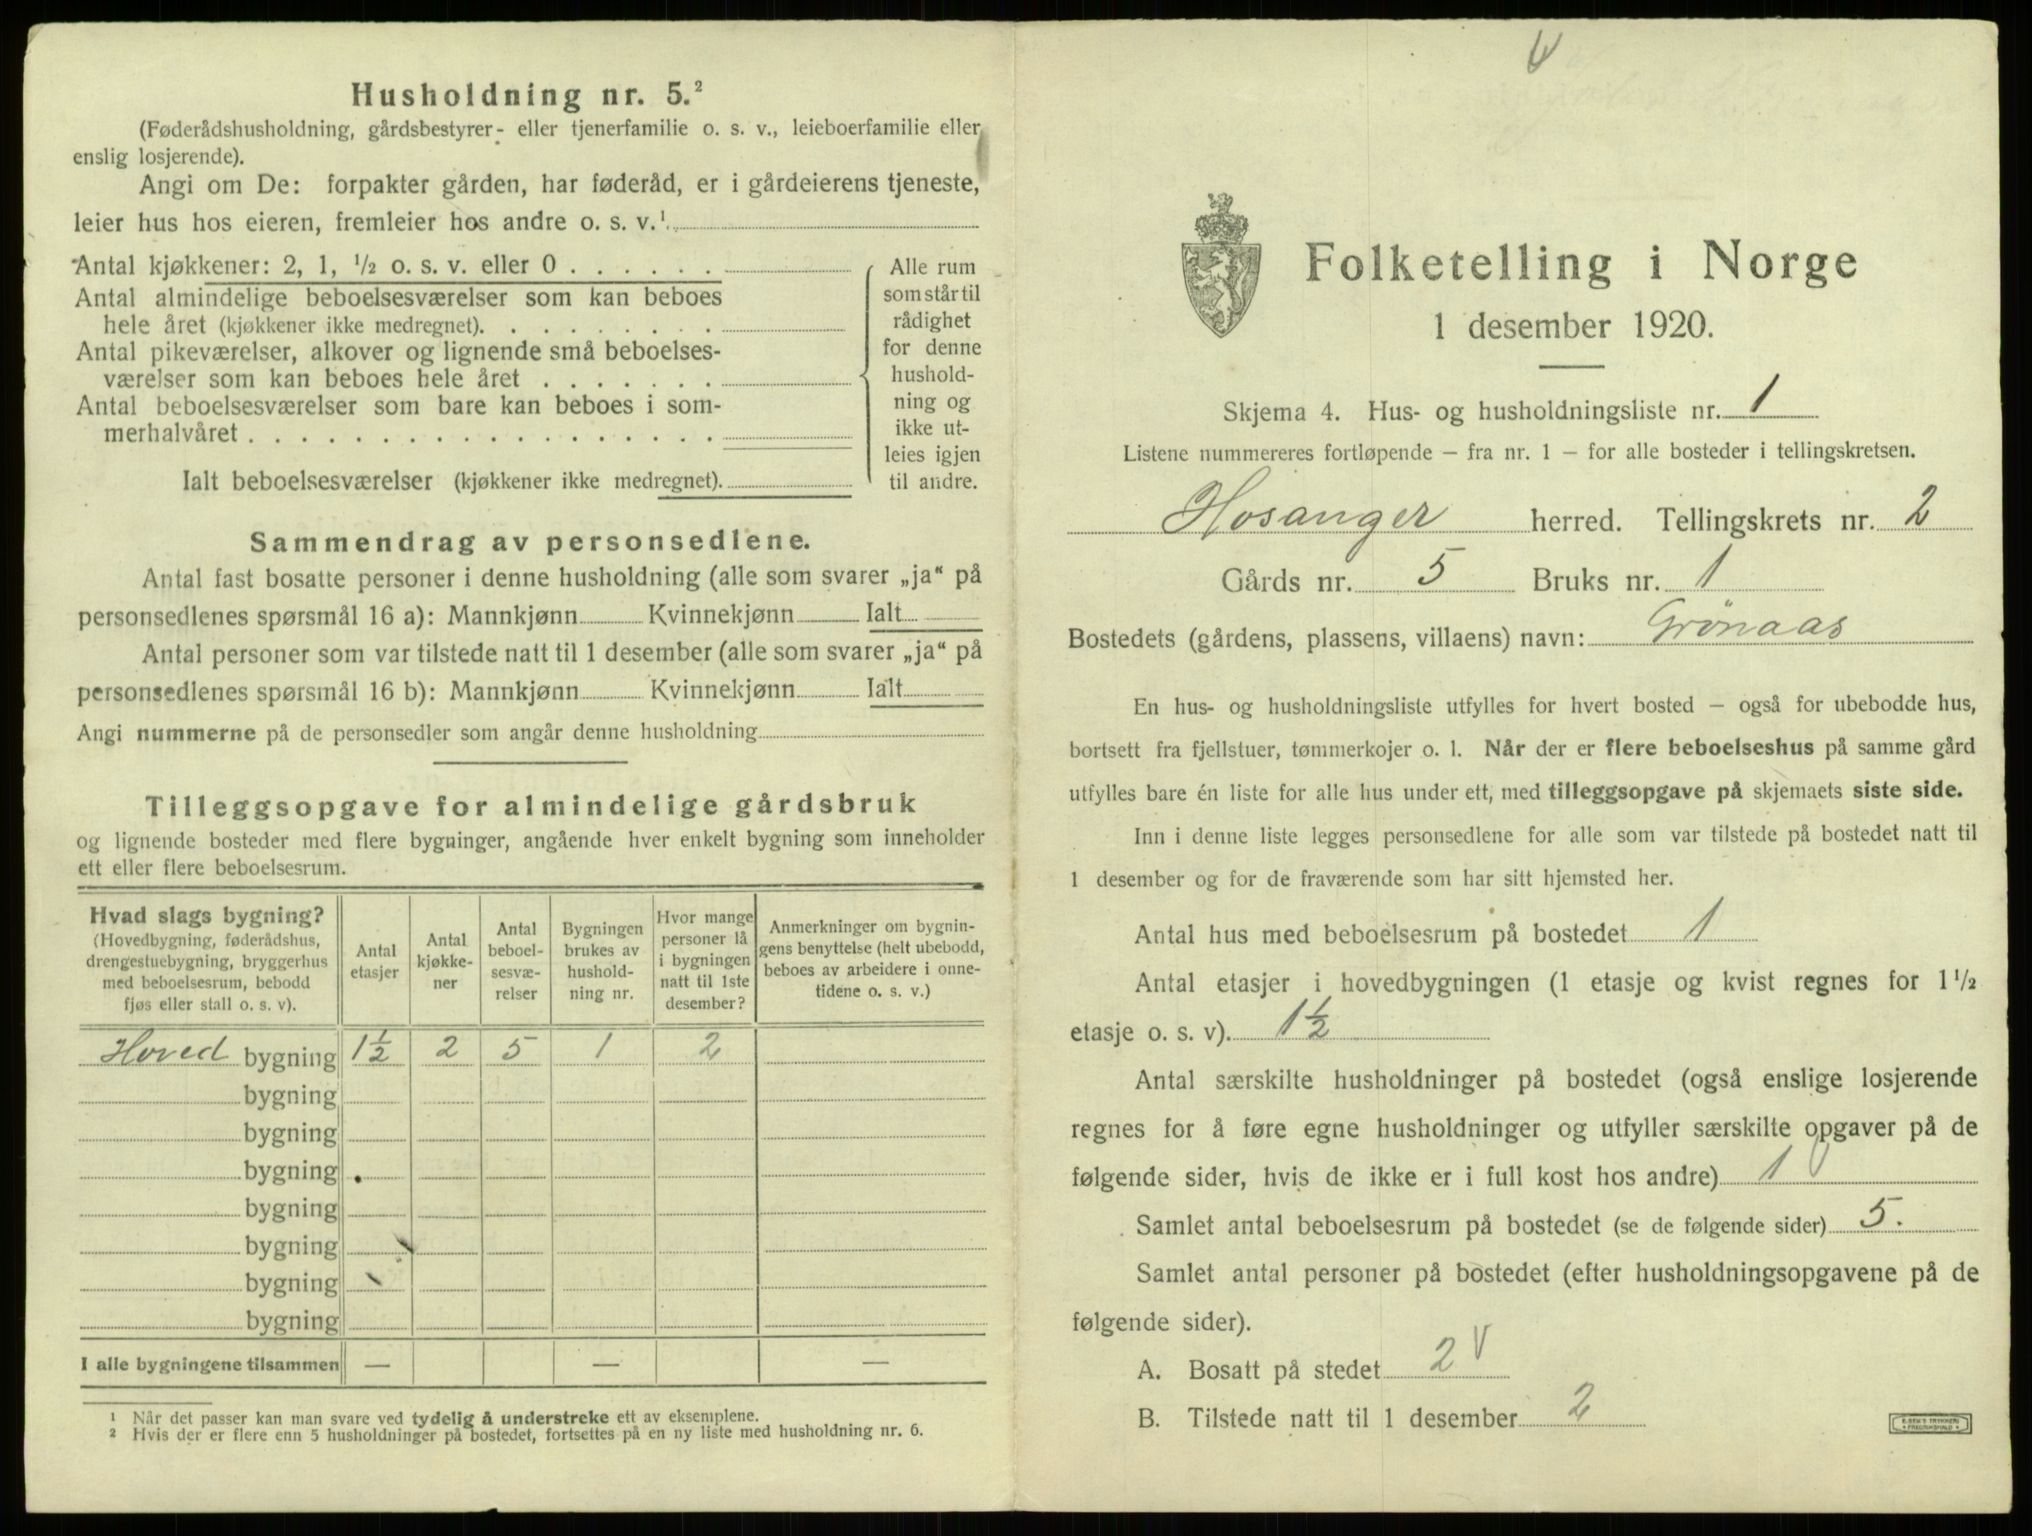 Husholdning nr. 5.²
(Føderådshusholdning, gårdsbestyrer- eller tjenerfamilie o. s. v., leieboerfamilie eller
enslig losjerende).
Angi om De: forpakter gården, har føderåd, er i gårdeierens tjeneste,
leier hus hos eieren, fremleier hos andre o. s. v.¹
Antal kjøkkener: 2, 1, ½ o. s. v. eller 0 . . . . . .
Antal almindelige beboelsesværelser som kan beboes
hele året (kjøkkener ikke medregnet). . . . . . . . .
Antal pikeværelser, alkover og lignende små beboelses-
værelser som kan beboes hele året . . . . . . .
Antal beboelsesværelser som bare kan beboes i som-
merhalvåret . . . . . . . . . . . . . . . . . .
Ialt beboelsesværelser (kjøkkener ikke medregnet).
Alle rum
som står til
rådighet
for denne
hushold-
ning og
ikke ut-
leies igjen
til andre.
Sammendrag av personsedlene.
Antal fast bosatte personer i denne husholdning (alle som svarer „ja“ på
personsedlenes spørsmål 16 a): Mannkjønn Kvinnekjønn Ialt
Antal personer som var tilstede natt til 1 desember (alle som svarer „ja“ på
personsedlenes spørsmål 16 b): Mannkjønn Kvinnekjønn Ialt
Angi nummerne på de personsedler som angår denne husholdning
Tilleggsopgave for almindelige gårdsbruk
og lignende bosteder med flere bygninger, angående hver enkelt bygning som inneholder
ett eller flere beboelsesrum.
Hvad slags bygning?
(Hovedbygning, føderådshus,
drengestuebygning, bryggerhus
med beboelsesrum, bebodd
fjøs eller stall o. s. v).
Antal
etasjer
Antal
kjøkke-
ner
Antal
beboel-
sesvæ-
relser
Bygningen
brukes av
hushold-
ning nr.
Hvor mange
personer lå
i bygningen
natt til 1ste
desember?
Anmerkninger om bygnin-
gens benyttelse (helt ubebodd,
beboes av arbeidere i onne-
tidene o. s. v.)
Hoved bygning 1½ 2 5 1 2
bygning
bygning
bygning
bygning
bygning
bygning
bygning
I alle bygningene tilsammen — — —
¹ Når det passer kan man svare ved tydelig å understreke ett av eksemplene.
² Hvis der er flere enn 5 husholdninger på bostedet, fortsettes på en ny liste med husholdning nr. 6.
Folketelling i Norge
1 desember 1920.
Skjema 4. Hus- og husholdningsliste nr. 1
Listene nummereres fortløpende — fra nr. 1 — for alle bosteder i tellingskretsen.
Hosanger herred. Tellingskrets nr. 2
Gårds nr. 5 Bruks nr. 1
Bostedets (gårdens, plassens, villaens) navn: Grønaas
En hus- og husholdningsliste utfylles for hvert bosted — også for ubebodde hus,
bortsett fra fjellstuer, tømmerkojer o. l. Når der er flere beboelseshus på samme gård
utfylles bare én liste for alle hus under ett, med tilleggsopgave på skjemaets siste side.
Inn i denne liste legges personsedlene for alle som var tilstede på bostedet natt til
1 desember og for de fraværende som har sitt hjemsted her.
Antal hus med beboelsesrum på bostedet 1
Antal etasjer i hovedbygningen (1 etasje og kvist regnes for 1½
etasje o. s. v). 1½
Antal særskilte husholdninger på bostedet (også enslige losjerende
regnes for å føre egne husholdninger og utfyller særskilte opgaver på de
følgende sider, hvis de ikke er i full kost hos andre) 1
Samlet antal beboelsesrum på bostedet (se de følgende sider) 5.
Samlet antal personer på bostedet (efter husholdningsopgavene på de
følgende sider).
A. Bosatt på stedet 2
B. Tilstede natt til 1 desember 2